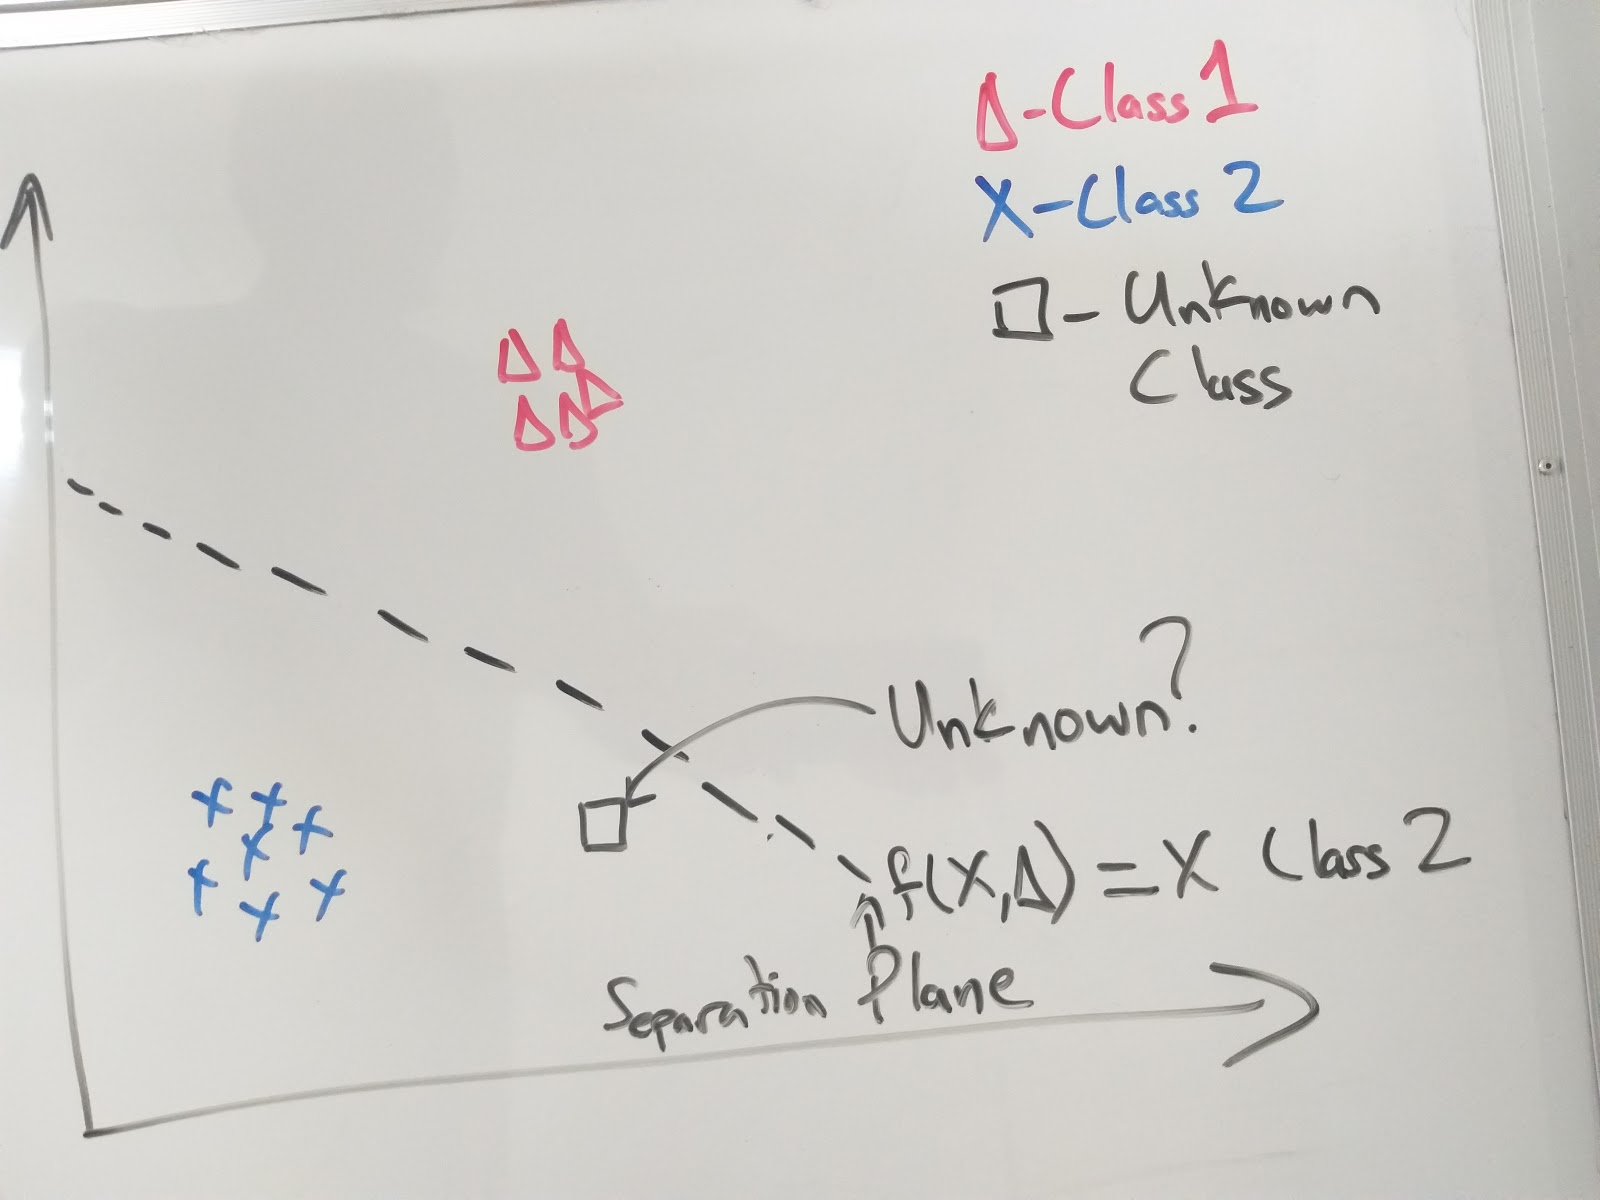 Δ-Class 1
X-Class 2
□-Unknown
Class
Unknown?
f(X,Δ)=X Class 2
Separation Plane